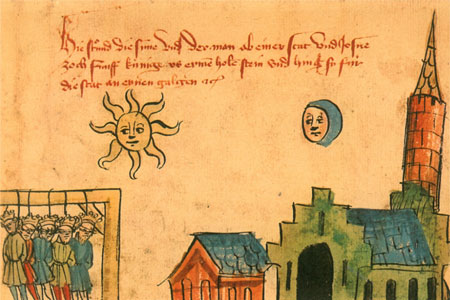 Hie stund die sune und der man ob einer stat und Josue
zoch funff künige us einem hole stein und hing sü für
die stat an einen galgen